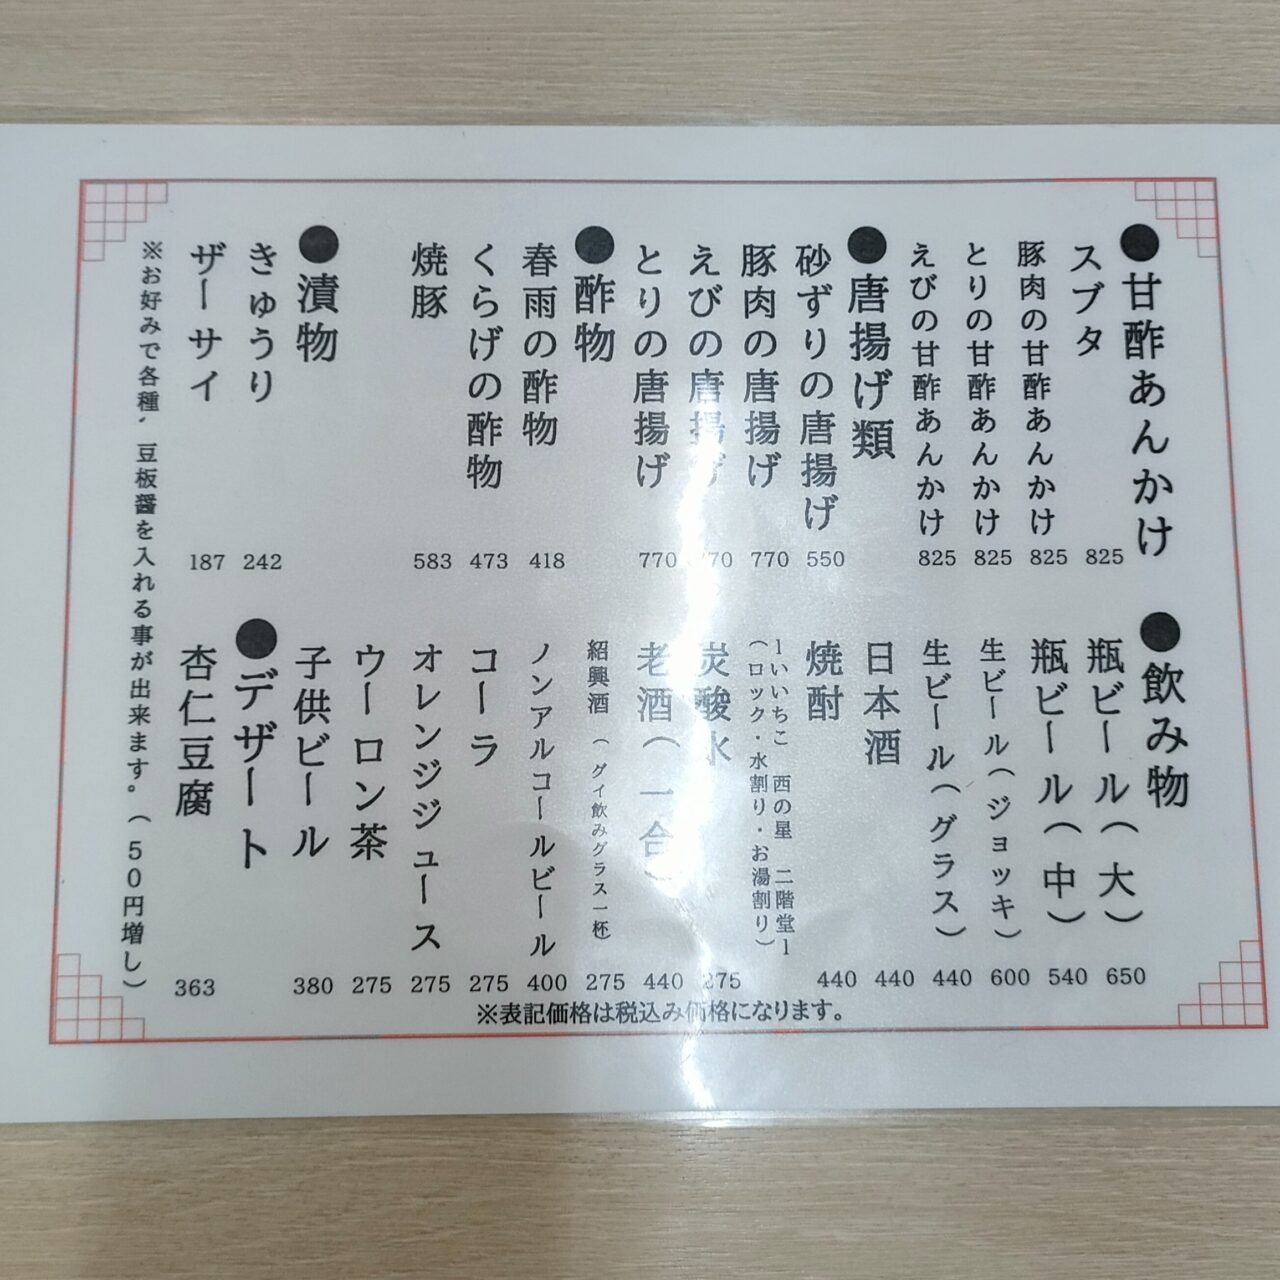 ●甘酢あんかけ
スブタ 825
豚肉の甘酢あんかけ 825
とりの甘酢あんかけ 825
えびの甘酢あんかけ 825
●唐揚げ類
砂ずりの唐揚げ 550
豚肉の唐揚げ 770
えびの唐揚げ 770
とりの唐揚げ 770
●酢物
春雨の酢物 418
くらげの酢物 473
焼豚 583
●漬物
きゅうり 242
ザーサイ 187
●飲み物
瓶ビール(大) 650
瓶ビール(中) 540
生ビール(ジョッキ) 600
生ビール(グラス) 440
日本酒 440
焼酎 440
lいいちこ 西の星 二階堂l
(ロック・水割り・お湯割り)
炭酸水 275
老酒(一合) 440
紹興酒 (グイ飲みグラス一杯) 275
ノンアルコールビール 400
コーラ 275
オレンジジュース 275
ウーロン茶 275
子供ビール 380
●デザート
杏仁豆腐 363
※お好みで各種、豆板醤を入れる事が出来ます。(50円増し)
※表記価格は税込み価格になります。